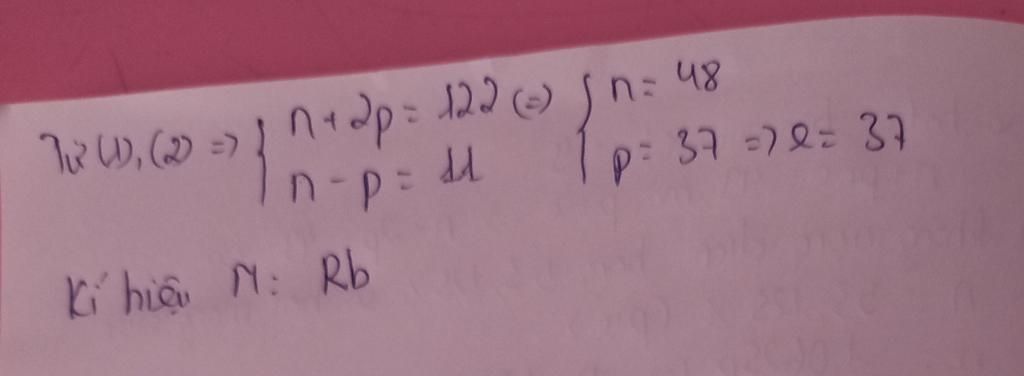 Từ (1), (2) => { n + 2p = 122 (=) { n = 48
n - p = 11 p = 37 => e = 37
Kí hiệu M: Rb